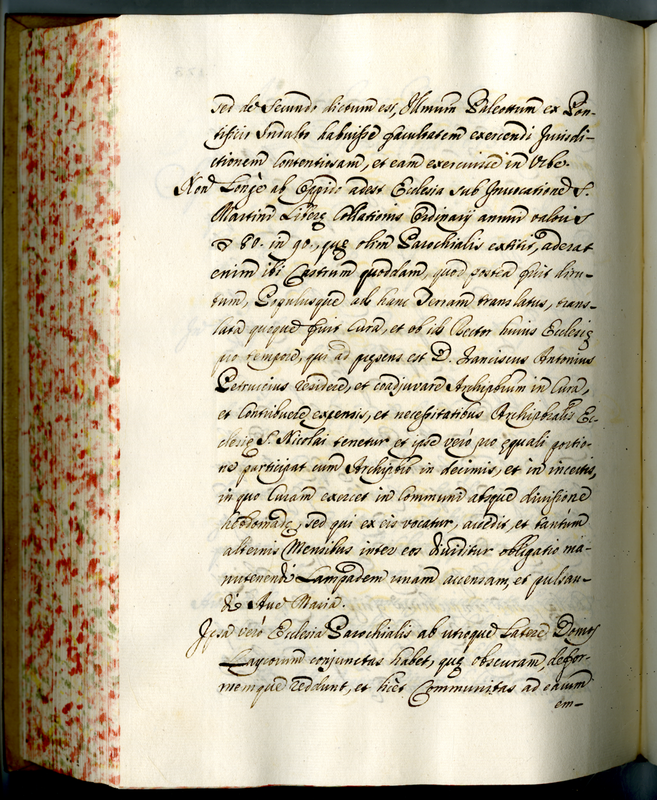 sed de secundo dictum est, Illmum Paleottum ex Pon-
tificio Indulto habuisse facultatem exercendi Jurisdi-
ctionem contentiosam, et eam exercuisse in Urbe.
Non longè ab Oppido adest Ecclesia sub Invocatione S.
Martini Liberę Collationis Ordinarij annui valoris
80. in 90., quę olim Parochialis extitit, aderat
enim ibi Castrum quoddam, quod postea fuit diru-
tum, Populusque ad hanc Terram translatus, trans-
lata quoque fuit Cura, et ob id Rector huius Ecclesię
pro tempore, qui ad pręsens est D. Franciscus Antonius
Petruccius residere, et coadjuvare Archipbrum in Cura,
et contribuere expensis, et necessitatibus Archipbralis Ec-
clesię S. Nicolai tenetur et ipse verò pro ęquali portio-
ne participat cum Archipbro in decimis, et in incertis,
in quo Curam exercet in communi absque divisione
hebdomadę, sed qui ex eis vocatur, accedit, et tantùm
alternis Mensibus inter eos dividitur obligatio ma-
nutenendi Lampadem unam accensam, et pulsan-
di Ave Maria.
Ipsa verò Ecclesia Parochialis ab utroque latere Domos
Laycorum conjunctas habet, quę obscuram, defor-
memque reddunt, et licèt Communitas ad earum
em-